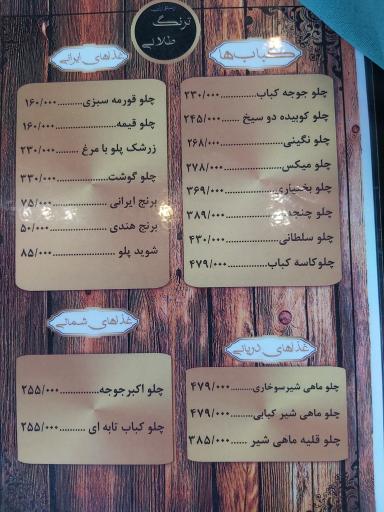 ترنگ
طلایی
کباب‌ها
چلو جوجه کباب..............۲۳۰/۰۰۰
چلو کوبیده دو سیخ ......۲۴۵/۰۰۰
چلو نگینی......................۲۶۸/۰۰۰
چلو میکس......................۲۷۸/۰۰۰
چلو بختیاری....................۳۶۹/۰۰۰
چلو چنجه......................۳۸۹/۰۰۰
چلو سلطانی..................۴۳۰/۰۰۰
چلوکاسه کباب..............۴۷۹/۰۰۰
غذاهای ایرانی
چلو قورمه سبزی..........۱۶۰/۰۰۰
چلو قیمه........................۱۶۰/۰۰۰
زرشک پلو با مرغ ..........۲۳۰/۰۰۰
چلو گوشت....................۳۳۰/۰۰۰
برنج ایرانی ....................۷۵/۰۰۰
برنج هندی ....................۵۰/۰۰۰
شوید پلو ......................۸۵/۰۰۰
غذاهای دریایی
چلو ماهی شیرسوخاری.........۴۷۹/۰۰۰
چلو ماهی شیر کبابی.........۴۷۹/۰۰۰
چلو قلیه ماهی شیر ......۳۸۵/۰۰۰
غذاهای شمالی
چلو اکبرجوجه...............۲۵۵/۰۰۰
چلو کباب تابه ای ..........۲۵۵/۰۰۰